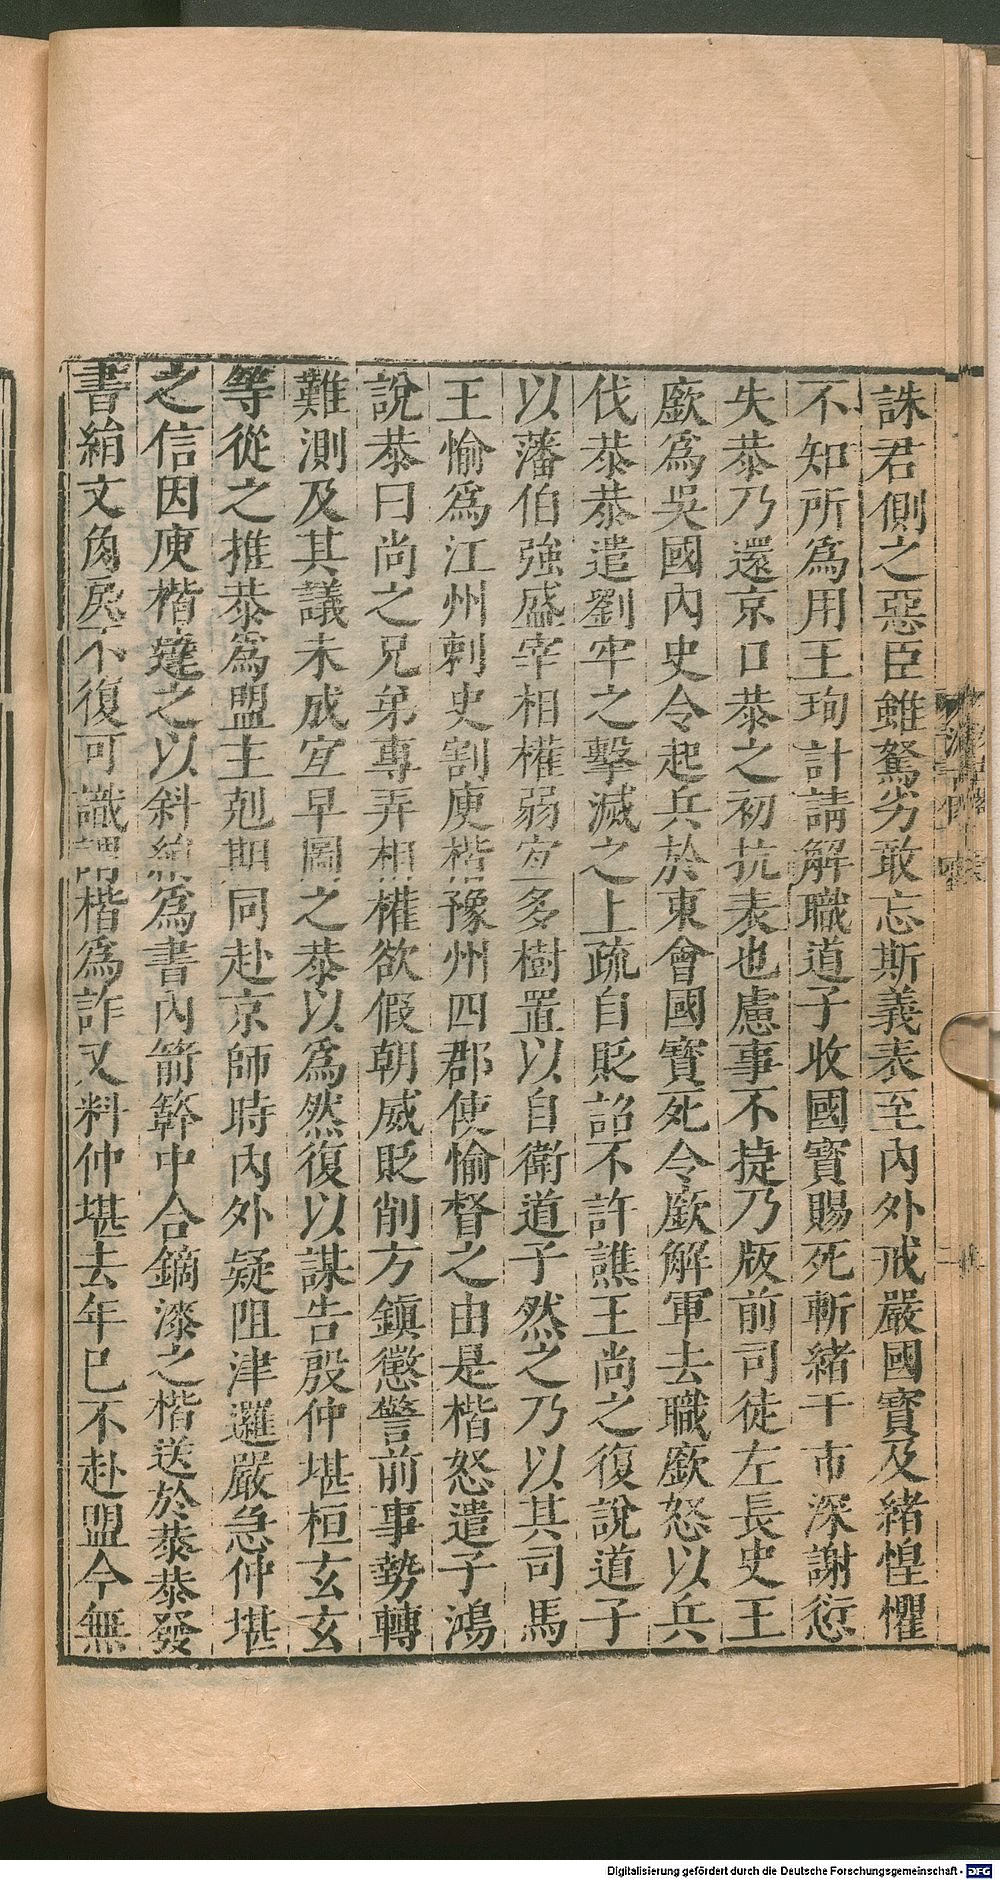 誅君側之惡臣雖駑劣敢忘斯義表至內外戒嚴國寶及緒惶懼
不知所爲用王珣計請解職道子收國寶賜死斬緒于市深謝愆
失恭乃還京口恭之初抗表也慮事不捷乃版前司徒左長史王
廞爲吳國內史令起兵於東會國寶死令廞解軍去職廞怒以兵
伐恭恭遣劉牢之擊滅之上疏自貶詔不許譙王尚之復說道子
以藩伯強盛宰相權弱宜多樹置以自衛道子然之乃以其司馬
王愉爲江州刺史割庾楷豫州四郡使愉督之由是楷怒遣子鴻
說恭曰尚之兄弟專弄相權欲假朝威貶削方鎮懲警前事勢轉
難測及其議未成宜早圖之恭以爲然復以謀告殷仲堪桓玄玄
等從之推恭爲盟主剋期同赴京師時內外疑阻津邏嚴急仲堪
之信因庾楷達之以斜絹爲書內箭簳中合鏑漆之楷送於恭恭發
書絹文角戾不復可識謂楷爲詐又料仲堪去年已不赴盟今無
Digitalisierung gefördert durch die Deutsche Forschungsgemeinschaft - DFG